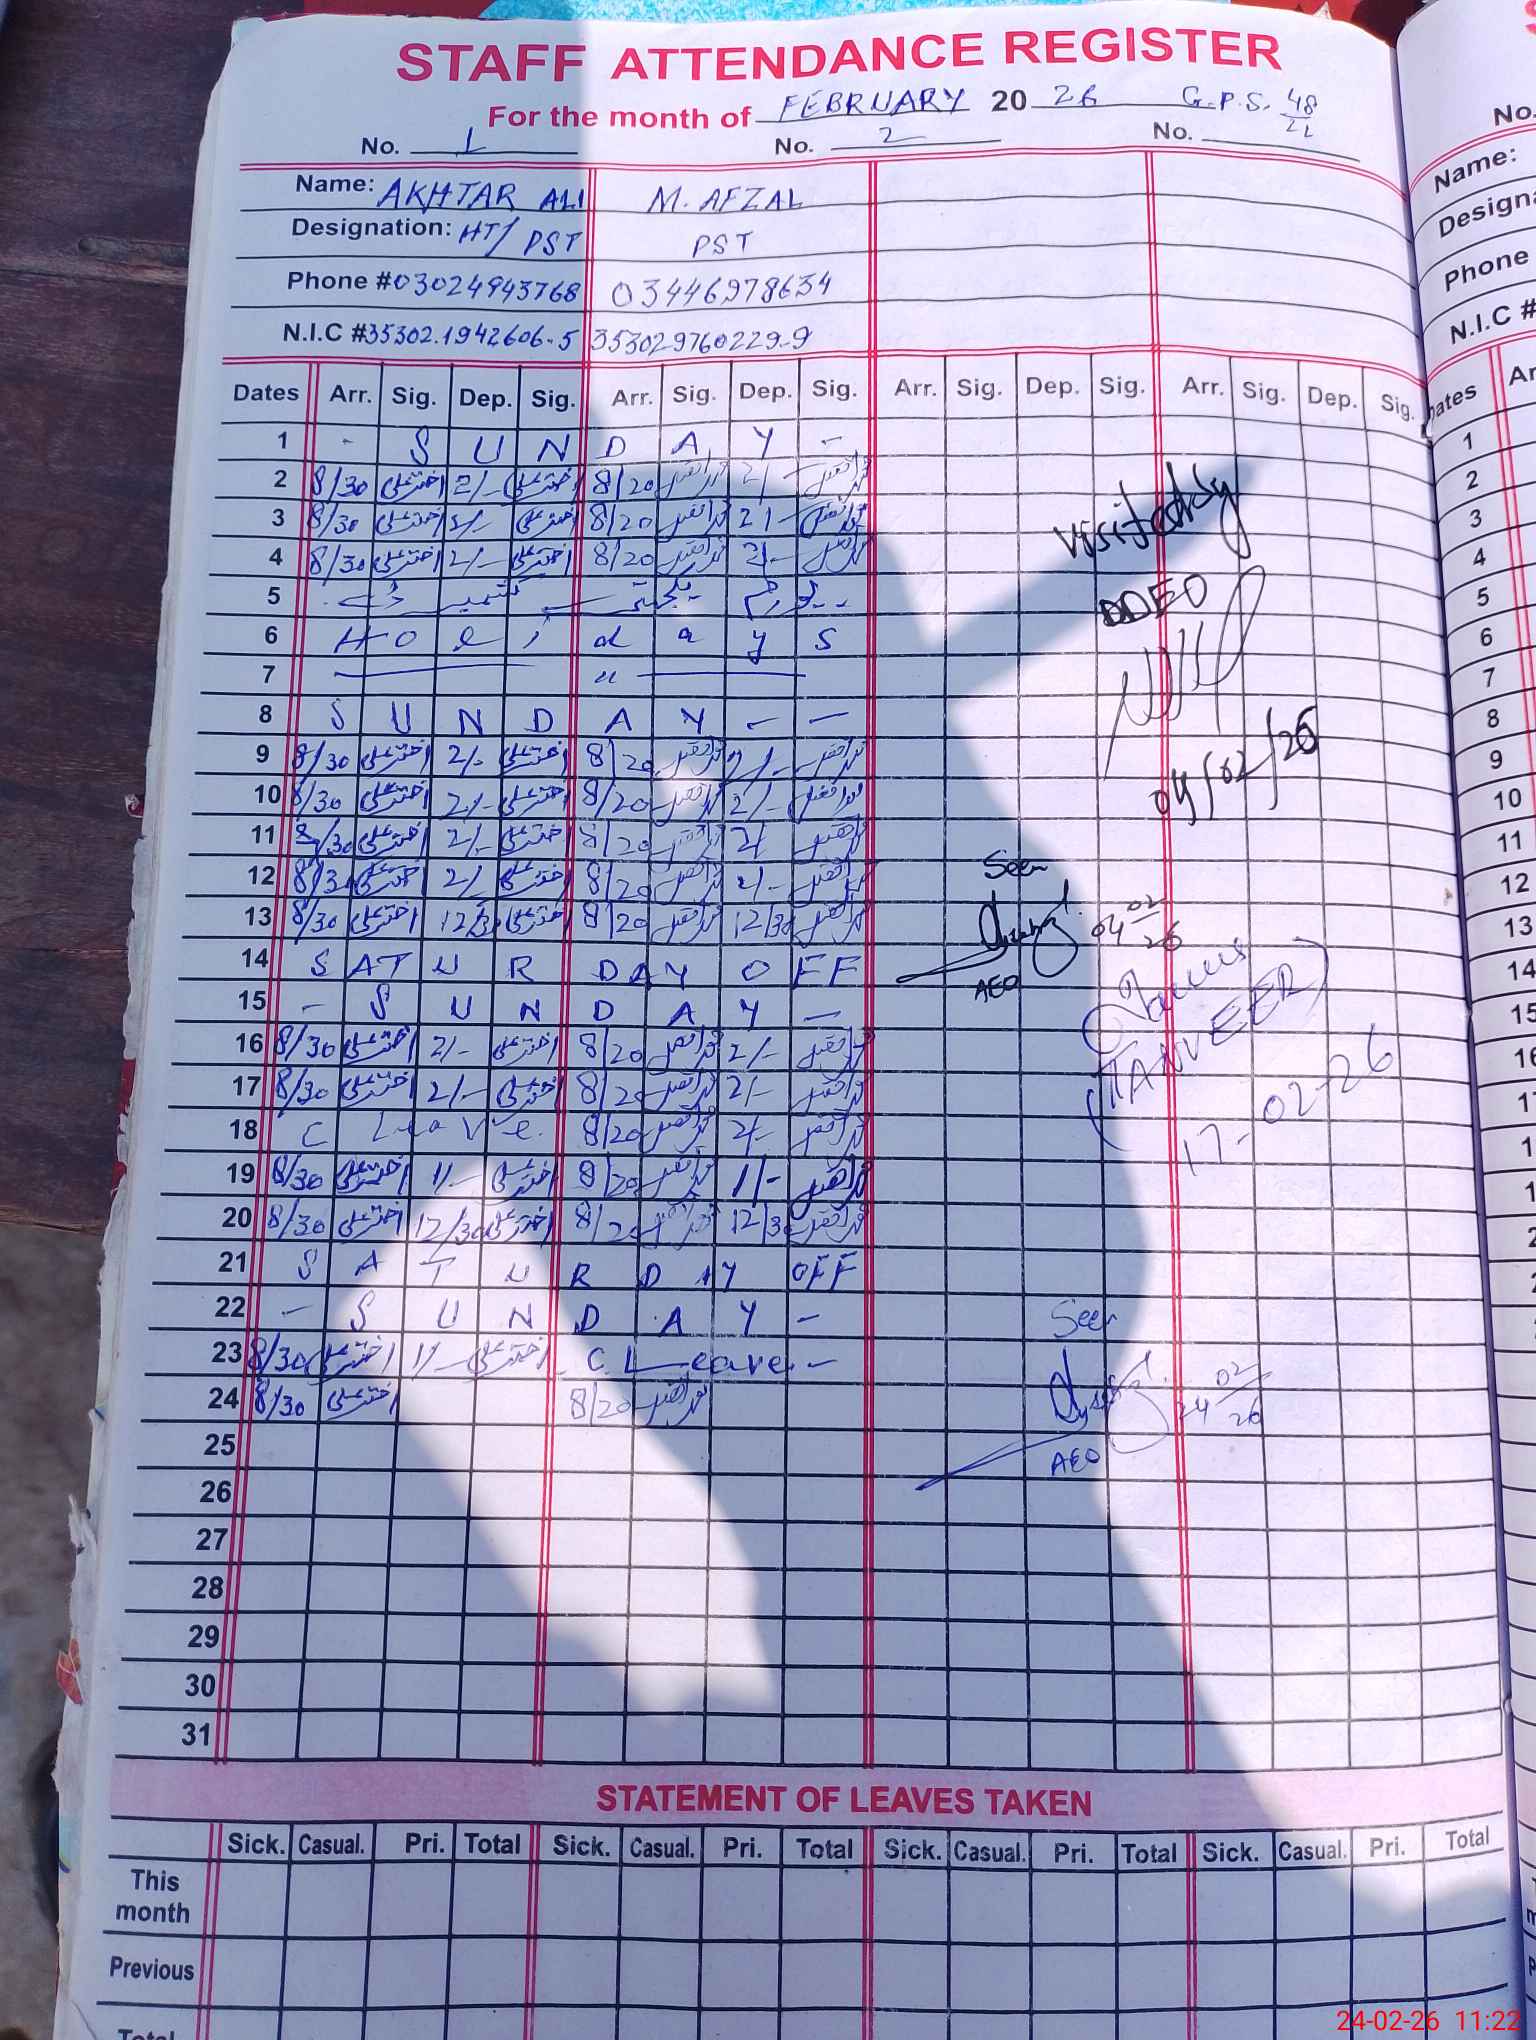 STAFF ATTENDANCE REGISTER
For the month of FEBRUARY 20 26 G.P.S. 48
No. 1 No. 2 No.
Name: AKHTAR ALI M. AFZAL
Designation: HT/PST PST
Phone #03024943768 03446978634
N.I.C #35302.1942606-5 353029760229-9
Dates Arr. Sig. Dep. Sig. Arr. Sig. Dep. Sig. Arr. Sig. Dep. Sig. Arr. Sig. Dep. Sig.
1 - S U N D A Y -
2 8/30 اختر علی 2/- اختر علی 8/20 محمد افضل 2/- محمد افضل
3 8/30 اختر علی 2/- اختر علی 8/20 محمد افضل 2/- محمد افضل
4 8/30 اختر علی 2/- اختر علی 8/20 محمد افضل 2/- محمد افضل
Visited by
DDEO
04/02/26
5 یوم یکجہتی کشمیر
6 H o l i d a y s
7 — " —
8 S U N D A Y - -
9 8/30 اختر علی 2/- اختر علی 8/20 محمد افضل 2/- محمد افضل
10 8/30 اختر علی 2/- اختر علی 8/20 محمد افضل 2/- محمد افضل
11 8/30 اختر علی 2/- اختر علی 8/20 محمد افضل 2/- محمد افضل
12 8/30 اختر علی 2/- اختر علی 8/20 محمد افضل 2/- محمد افضل
13 8/30 اختر علی 12/30 اختر علی 8/20 محمد افضل 12/30 محمد افضل
Seen
04 02 26
AEO
14 S A T U R D A Y O F F
15 - S U N D A Y -
16 8/30 اختر علی 2/- اختر علی 8/20 محمد افضل 2/- محمد افضل
17 8/30 اختر علی 2/- اختر علی 8/20 محمد افضل 2/- محمد افضل
(TANVEER)
17-02-26
18 C Leave 8/20 محمد افضل 2/- محمد افضل
19 8/30 اختر علی 1/- اختر علی 8/20 محمد افضل 1/- محمد افضل
20 8/30 اختر علی 12/30 اختر علی 8/20 محمد افضل 12/30 محمد افضل
21 S A T U R D A Y OFF
22 - S U N D A Y -
23 8/30 اختر علی 1/- اختر علی C. Leave -
24 8/30 اختر علی 8/20 محمد افضل
Seen
24 02 26
AEO
25
26
27
28
29
30
31
STATEMENT OF LEAVES TAKEN
Sick. Casual. Pri. Total Sick. Casual. Pri. Total Sick. Casual. Pri. Total Sick. Casual. Pri. Total
This month
Previous
Total
No.
Name:
Designa
Phone
N.I.C #
24-02-26 11:22